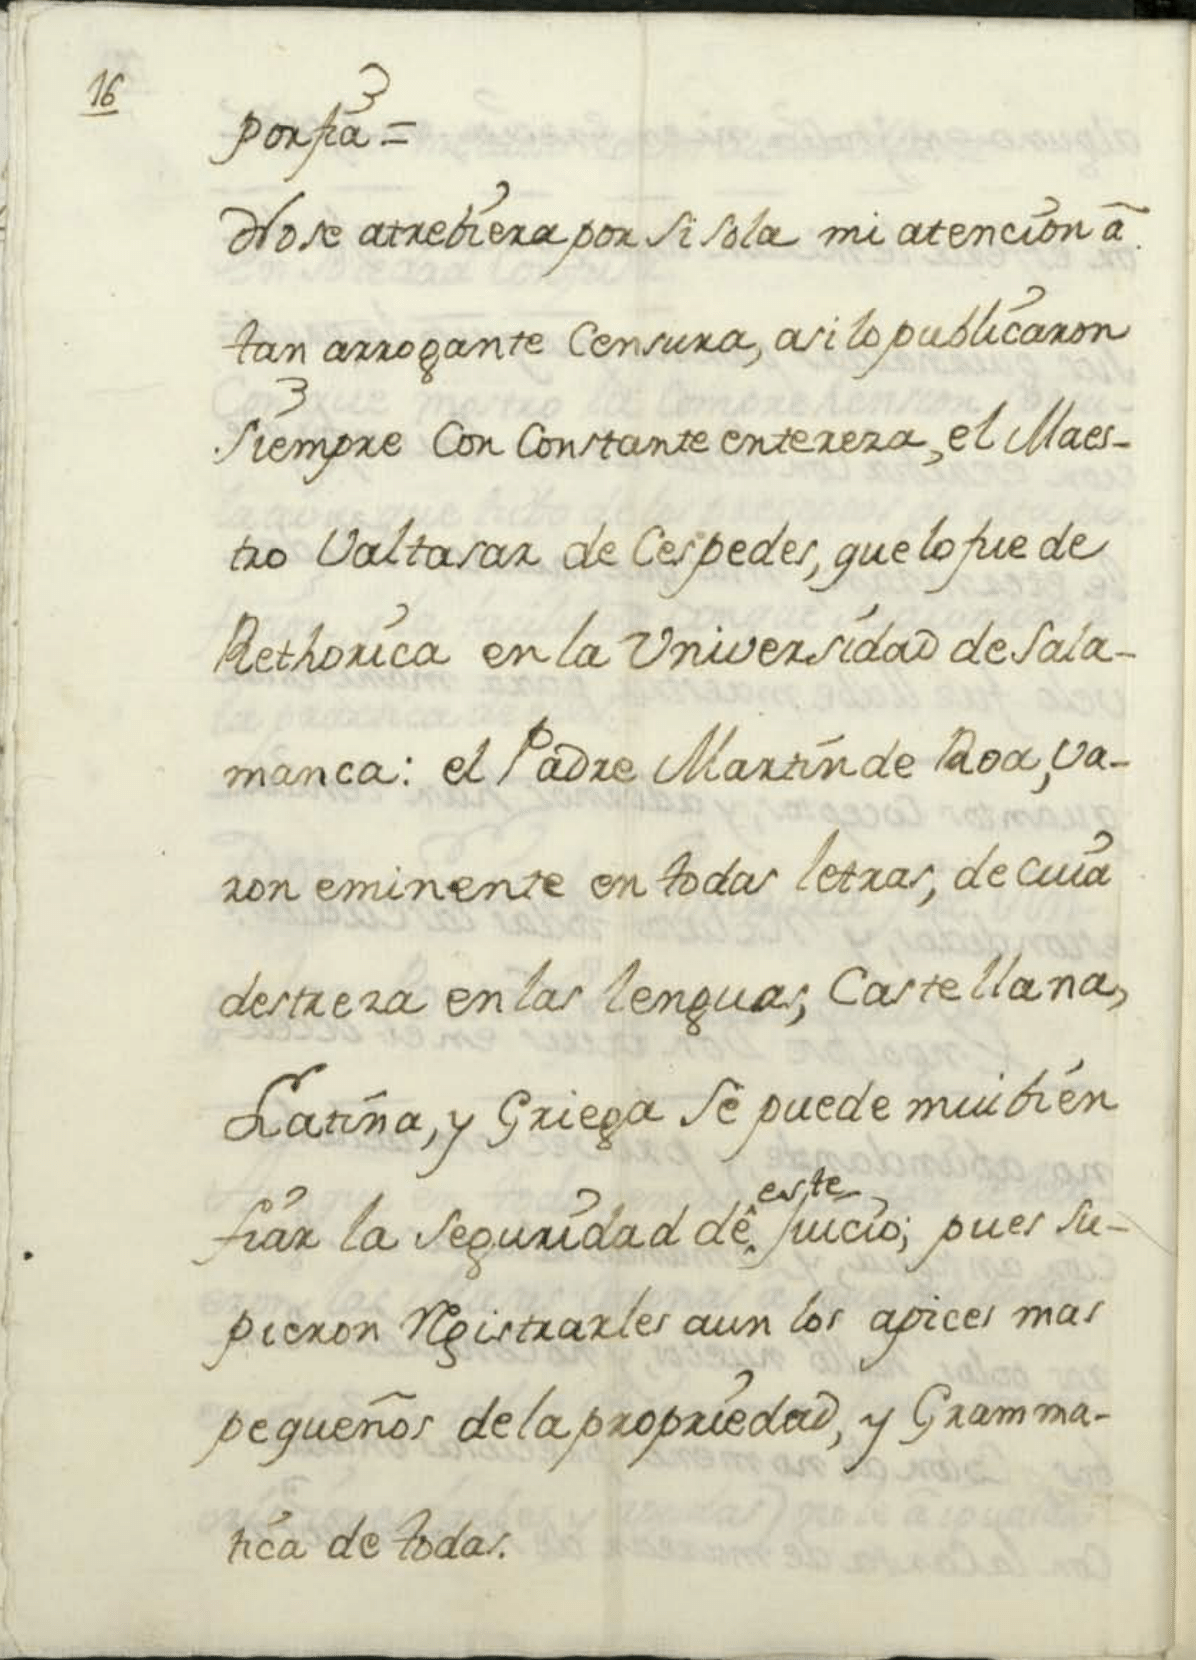 16
porfia =
No se atrebiera por si sola mi atencion â
tan arrogante Censura, asi lo publicaron
Siempre Con Constante entereza, el Maes-
tro Valtasar de Cespedes, que lo fue de
Rethorica en la Universidad de Sala-
manca: el Padre Martin de Roa, Va-
ron eminente en todas letras, de cuia
destreza en las lenguas, Castellana,
Latina, y Griega Se puede mui bien
fiar la seguridad de este juicio; pues Su-
pieron Registrarles aun los apices mas
pequeños de la propriedad, y Gramma-
tica de todas.